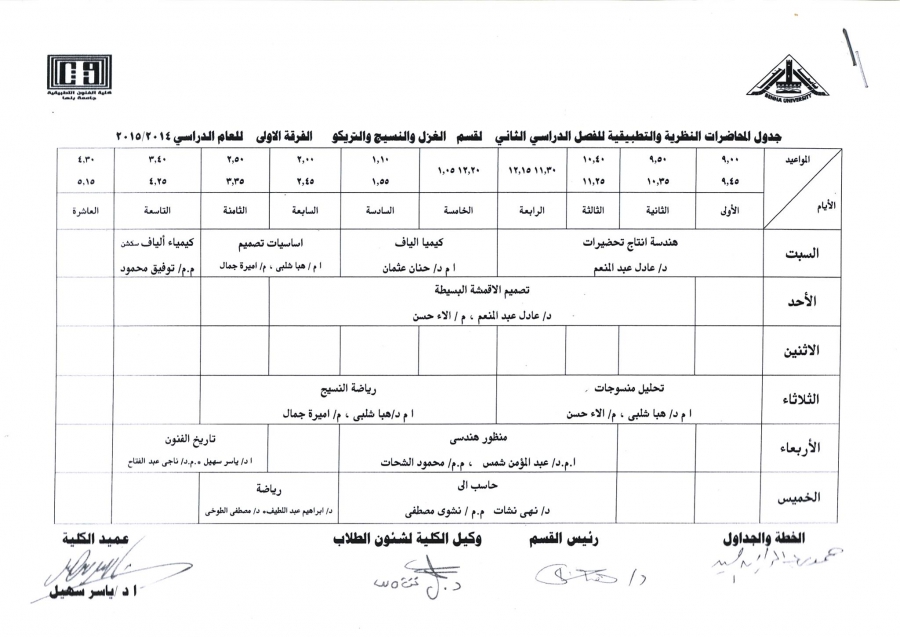 كلية الفنون التطبيقية
جامعة بنها
BENHA UNIVERSITY
جدول المحاضرات النظرية والتطبيقية للفصل الدراسي الثاني لقسم الغزل والنسيج والتريكو الفرقة الاولى للعام الدراسي ٢٠١٥/٢٠١٤
المواعيد ٩,٠٠ ٩,٥٠ ١٠,٤٠ ١١,٣٠ ١٢,١٥ ١٢,٢٠ ١,٠٥ ١,١٠ ٢,٠٠ ٢,٥٠ ٣,٤٠ ٤,٣٠
٩,٤٥ ١٠,٣٥ ١١,٢٥ ١,٥٥ ٢,٤٥ ٣,٣٥ ٤,٢٥ ٥,١٥
الأيام الأولى الثانية الثالثة الرابعة الخامسة السادسة السابعة الثامنة التاسعة العاشرة
السبت هندسة انتاج تحضيرات كيميا الياف اساسيات تصميم كيمياء ألياف سكشن
د/ عادل عبد المنعم ا م د/ حنان عثمان ا م/ هبا شلبى ، م/ اميرة جمال م.م/ توفيق محمود
الأحد تصميم الاقمشة البسيطة
د/ عادل عبد المنعم ، م / الاء حسن
الاثنين
الثلاثاء تحليل منسوجات رياضة النسيج
ا م د/ هبا شلبى ، م/ الاء حسن ا م د/ هبا شلبى ، م/ اميرة جمال
الأربعاء منظور هندسى تاريخ الفنون
ا.م.د/ عبد المؤمن شمس ، م.م/ محمود الشحات ا د/ ياسر سهيل ،م.د/ ناجى عبد الفتاح
الخميس حاسب الى رياضة
د/ نهى نشات م.م / نشوى مصطفى د/ ابراهيم عبد اللطيف، د/ مصطفى الطوخى
الخطة والجداول رئيس القسم وكيل الكلية لشئون الطلاب عميد الكلية
د/
ا د /ياسر سهيل